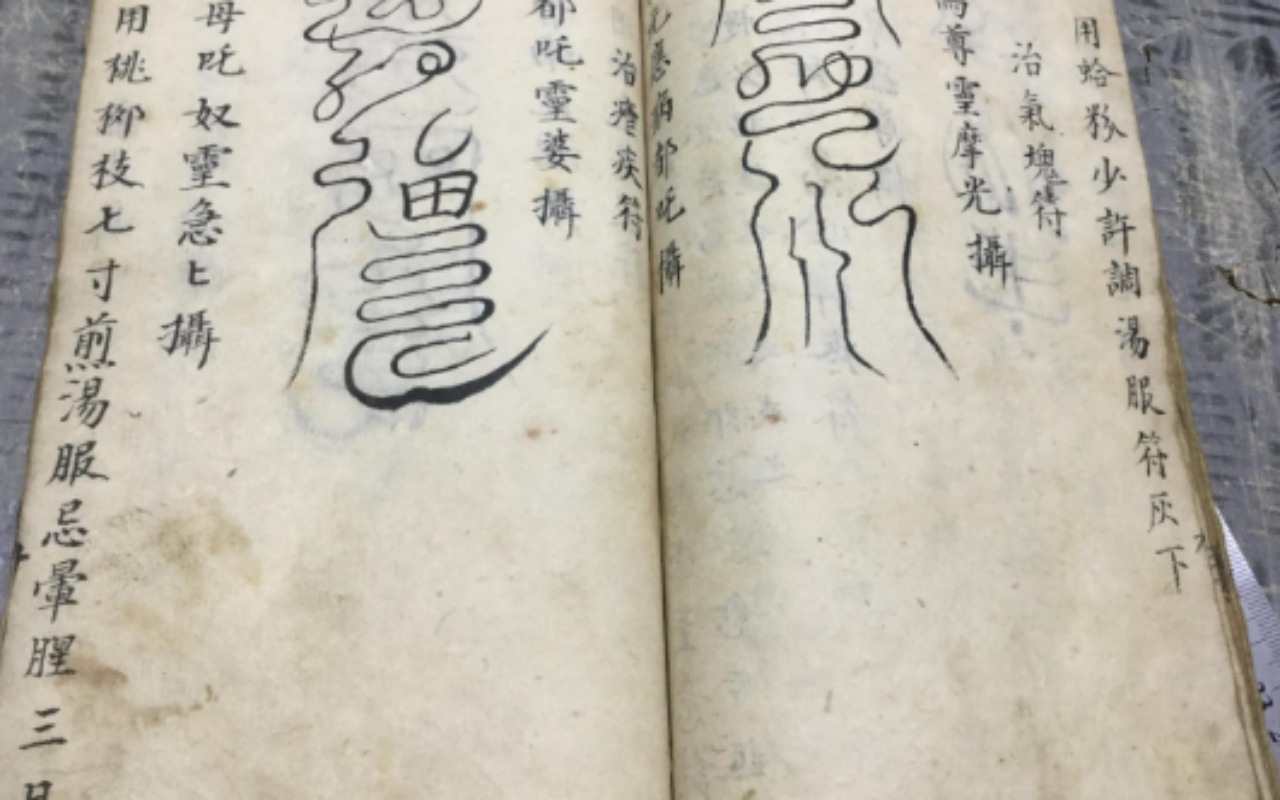 用蛤粉少許調湯服符灰下
治氣塊符
尊靈摩光攝
病都吒攝
治瘧疾符
都吒靈婆攝
母吒奴靈急匕攝
用桃柳枝七寸煎湯服忌暈腥三日